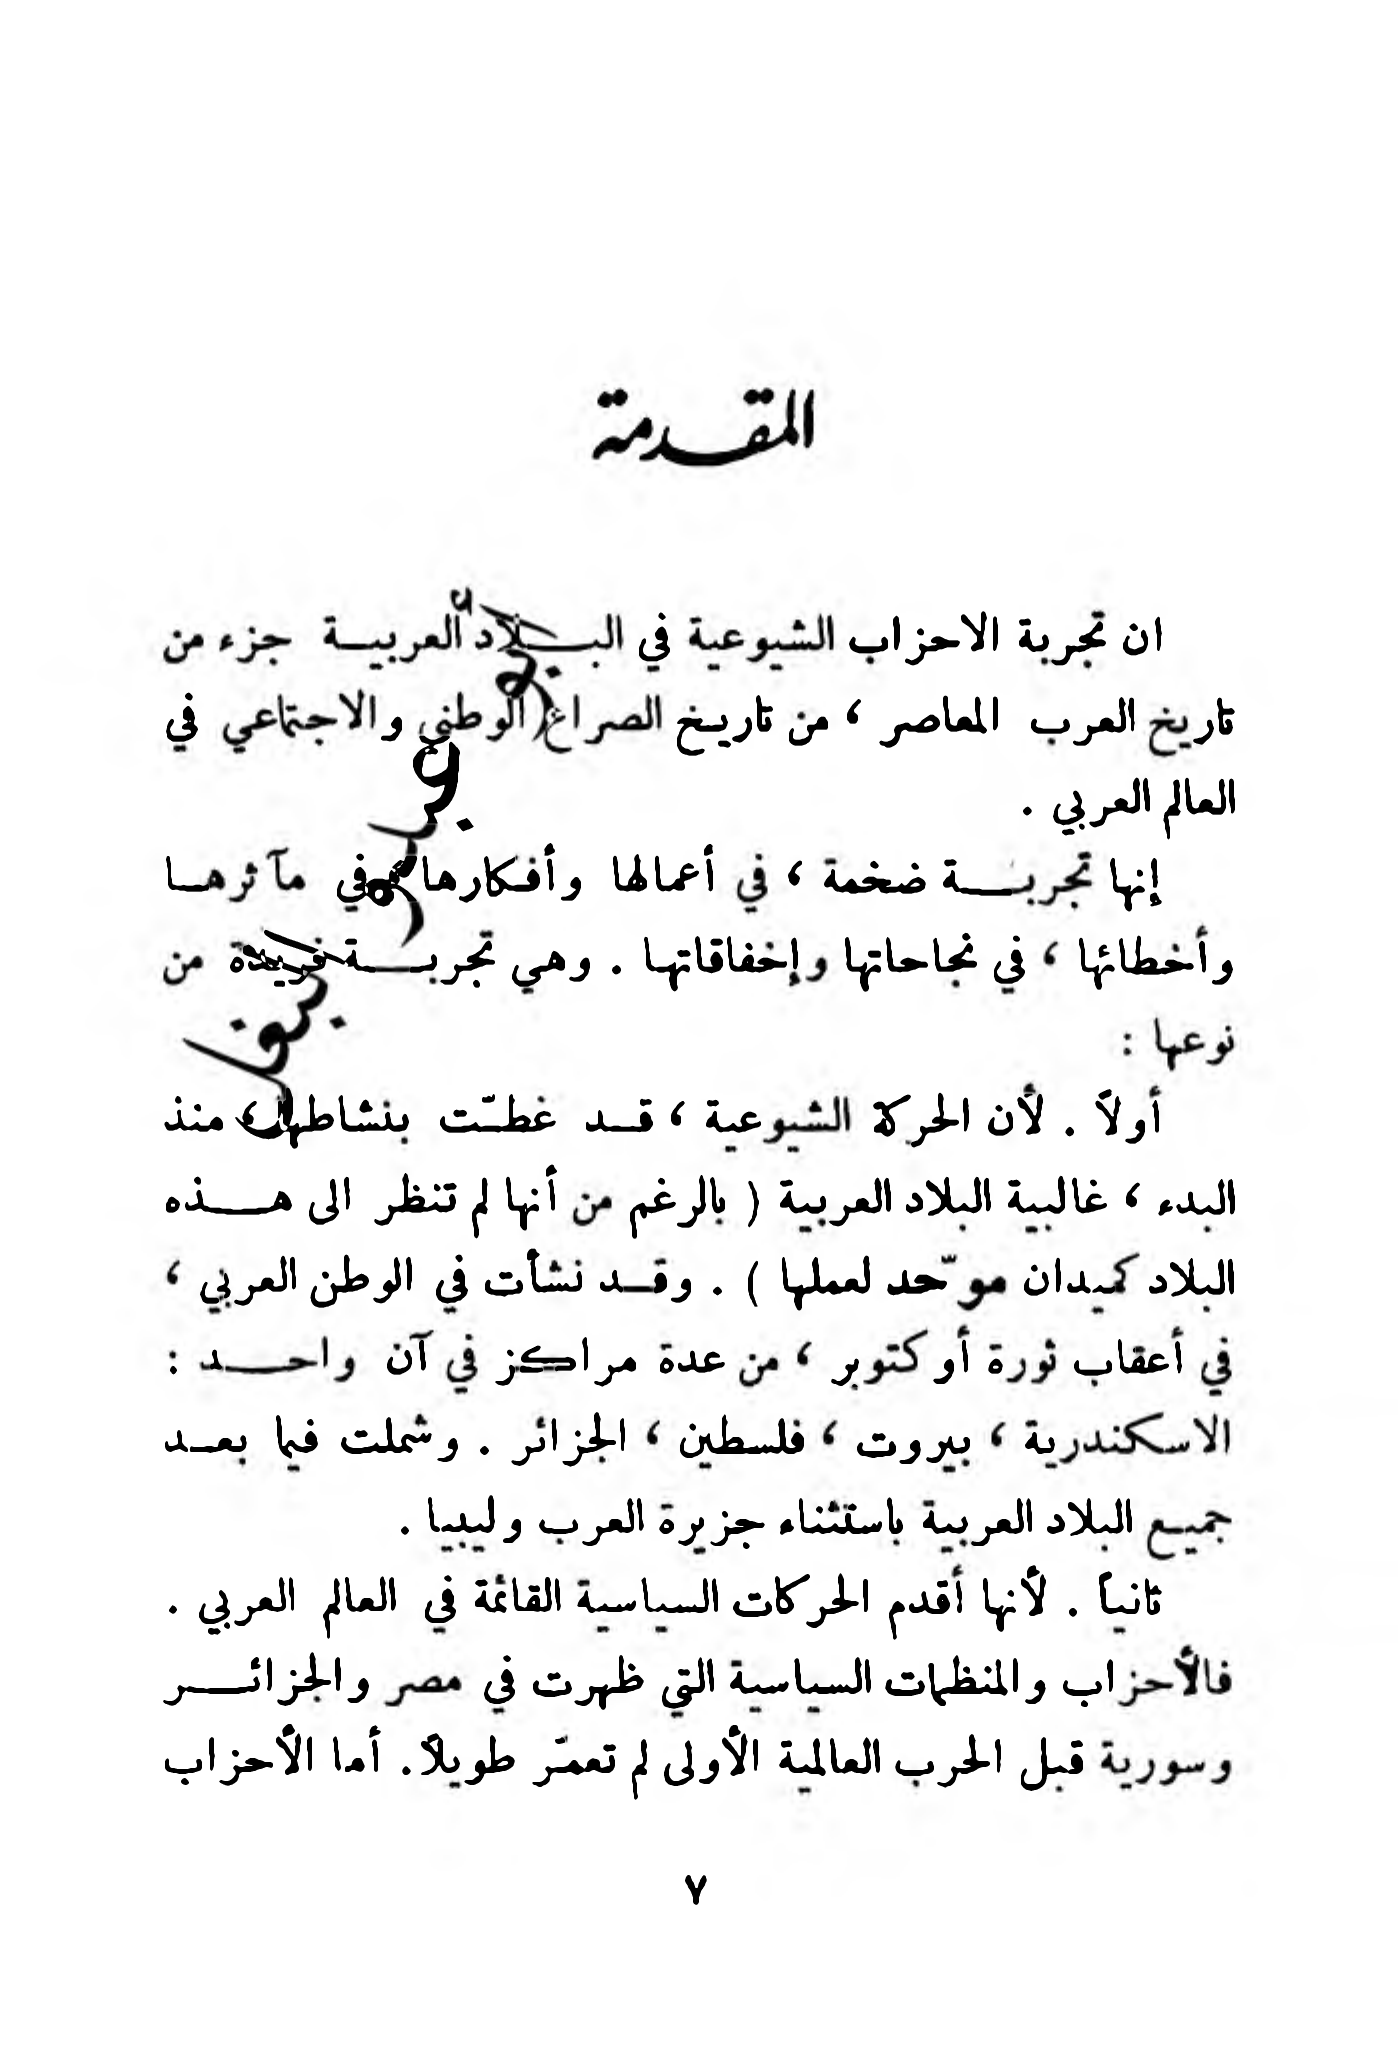 المقدمة
ان تجربة الاحزاب الشيوعية في البلاد العربية جزء من
تاريخ العرب المعاصر ، من تاريخ الصراع الوطني والاجتماعي في
العالم العربي .
إنها تجربة ضخمة ، في أعمالها وأفكارها ، في مآثرها
وأخطائها ، في نجاحاتها وإخفاقاتها . وهي تجربة فريدة من
نوعها :
أولاً . لأن الحركة الشيوعية ، قد غطّت بنشاطها ، منذ
البدء ، غالبية البلاد العربية ( بالرغم من أنها لم تنظر الى هذه
البلاد كميدان موّحد لعملها ) . وقد نشأت في الوطن العربي ،
في أعقاب ثورة أوكتوبر ، من عدة مراكز في آن واحد :
الاسكندرية ، بيروت ، فلسطين ، الجزائر . وشملت فيما بعد
جميع البلاد العربية باستثناء جزيرة العرب وليبيا .
ثانياً . لأنها أقدم الحركات السياسية القائمة في العالم العربي .
فالأحزاب والمنظمات السياسية التي ظهرت في مصر والجزائر
وسورية قبل الحرب العالمية الأولى لم تعمّر طويلاً. أما الأحزاب
٧